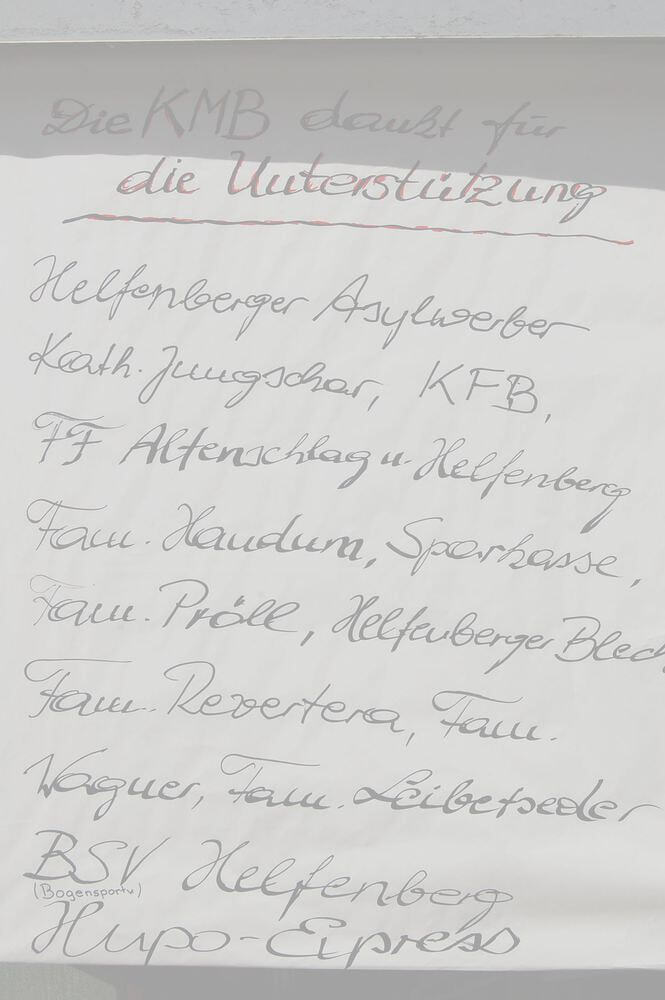 Die KMB dankt für
die Unterstützung
Helfenberger Asylwerber
Kath. Jungschar, KFB,
FF Altenschlag u. Helfenberg
Fam. Haudum, Sparkasse,
Fam. Pröll, Helfenberger Blech
Fam. Revertera, Fam.
Wagner, Fam. Leibetseder
BSV Helfenberg
(Bogensportv)
Hupo-Express